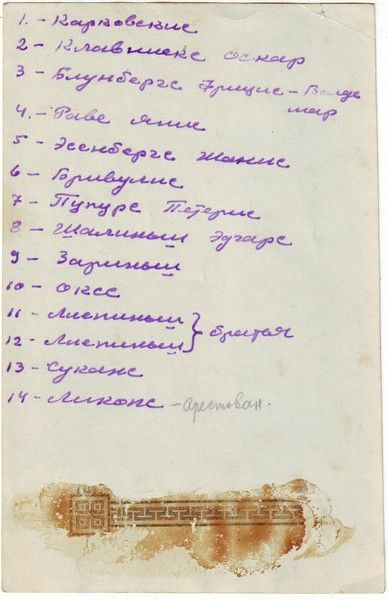 1. - Карковскис
2 - Клавниекс оскар
3 - Блунбергс Фрицис - Волде
мар
4. - Раве Янис
5 - Эсенбергс Жанис
6 - Гривулис
7 - Пупурс Петерис
8 - Шалиньш Эдгарс
9 - Зариньш
10 - Оксс
11 - Лиепиньш
12 - Лиепиньш } братья
13 - Суканс
14 - Ликопс - Арестован.